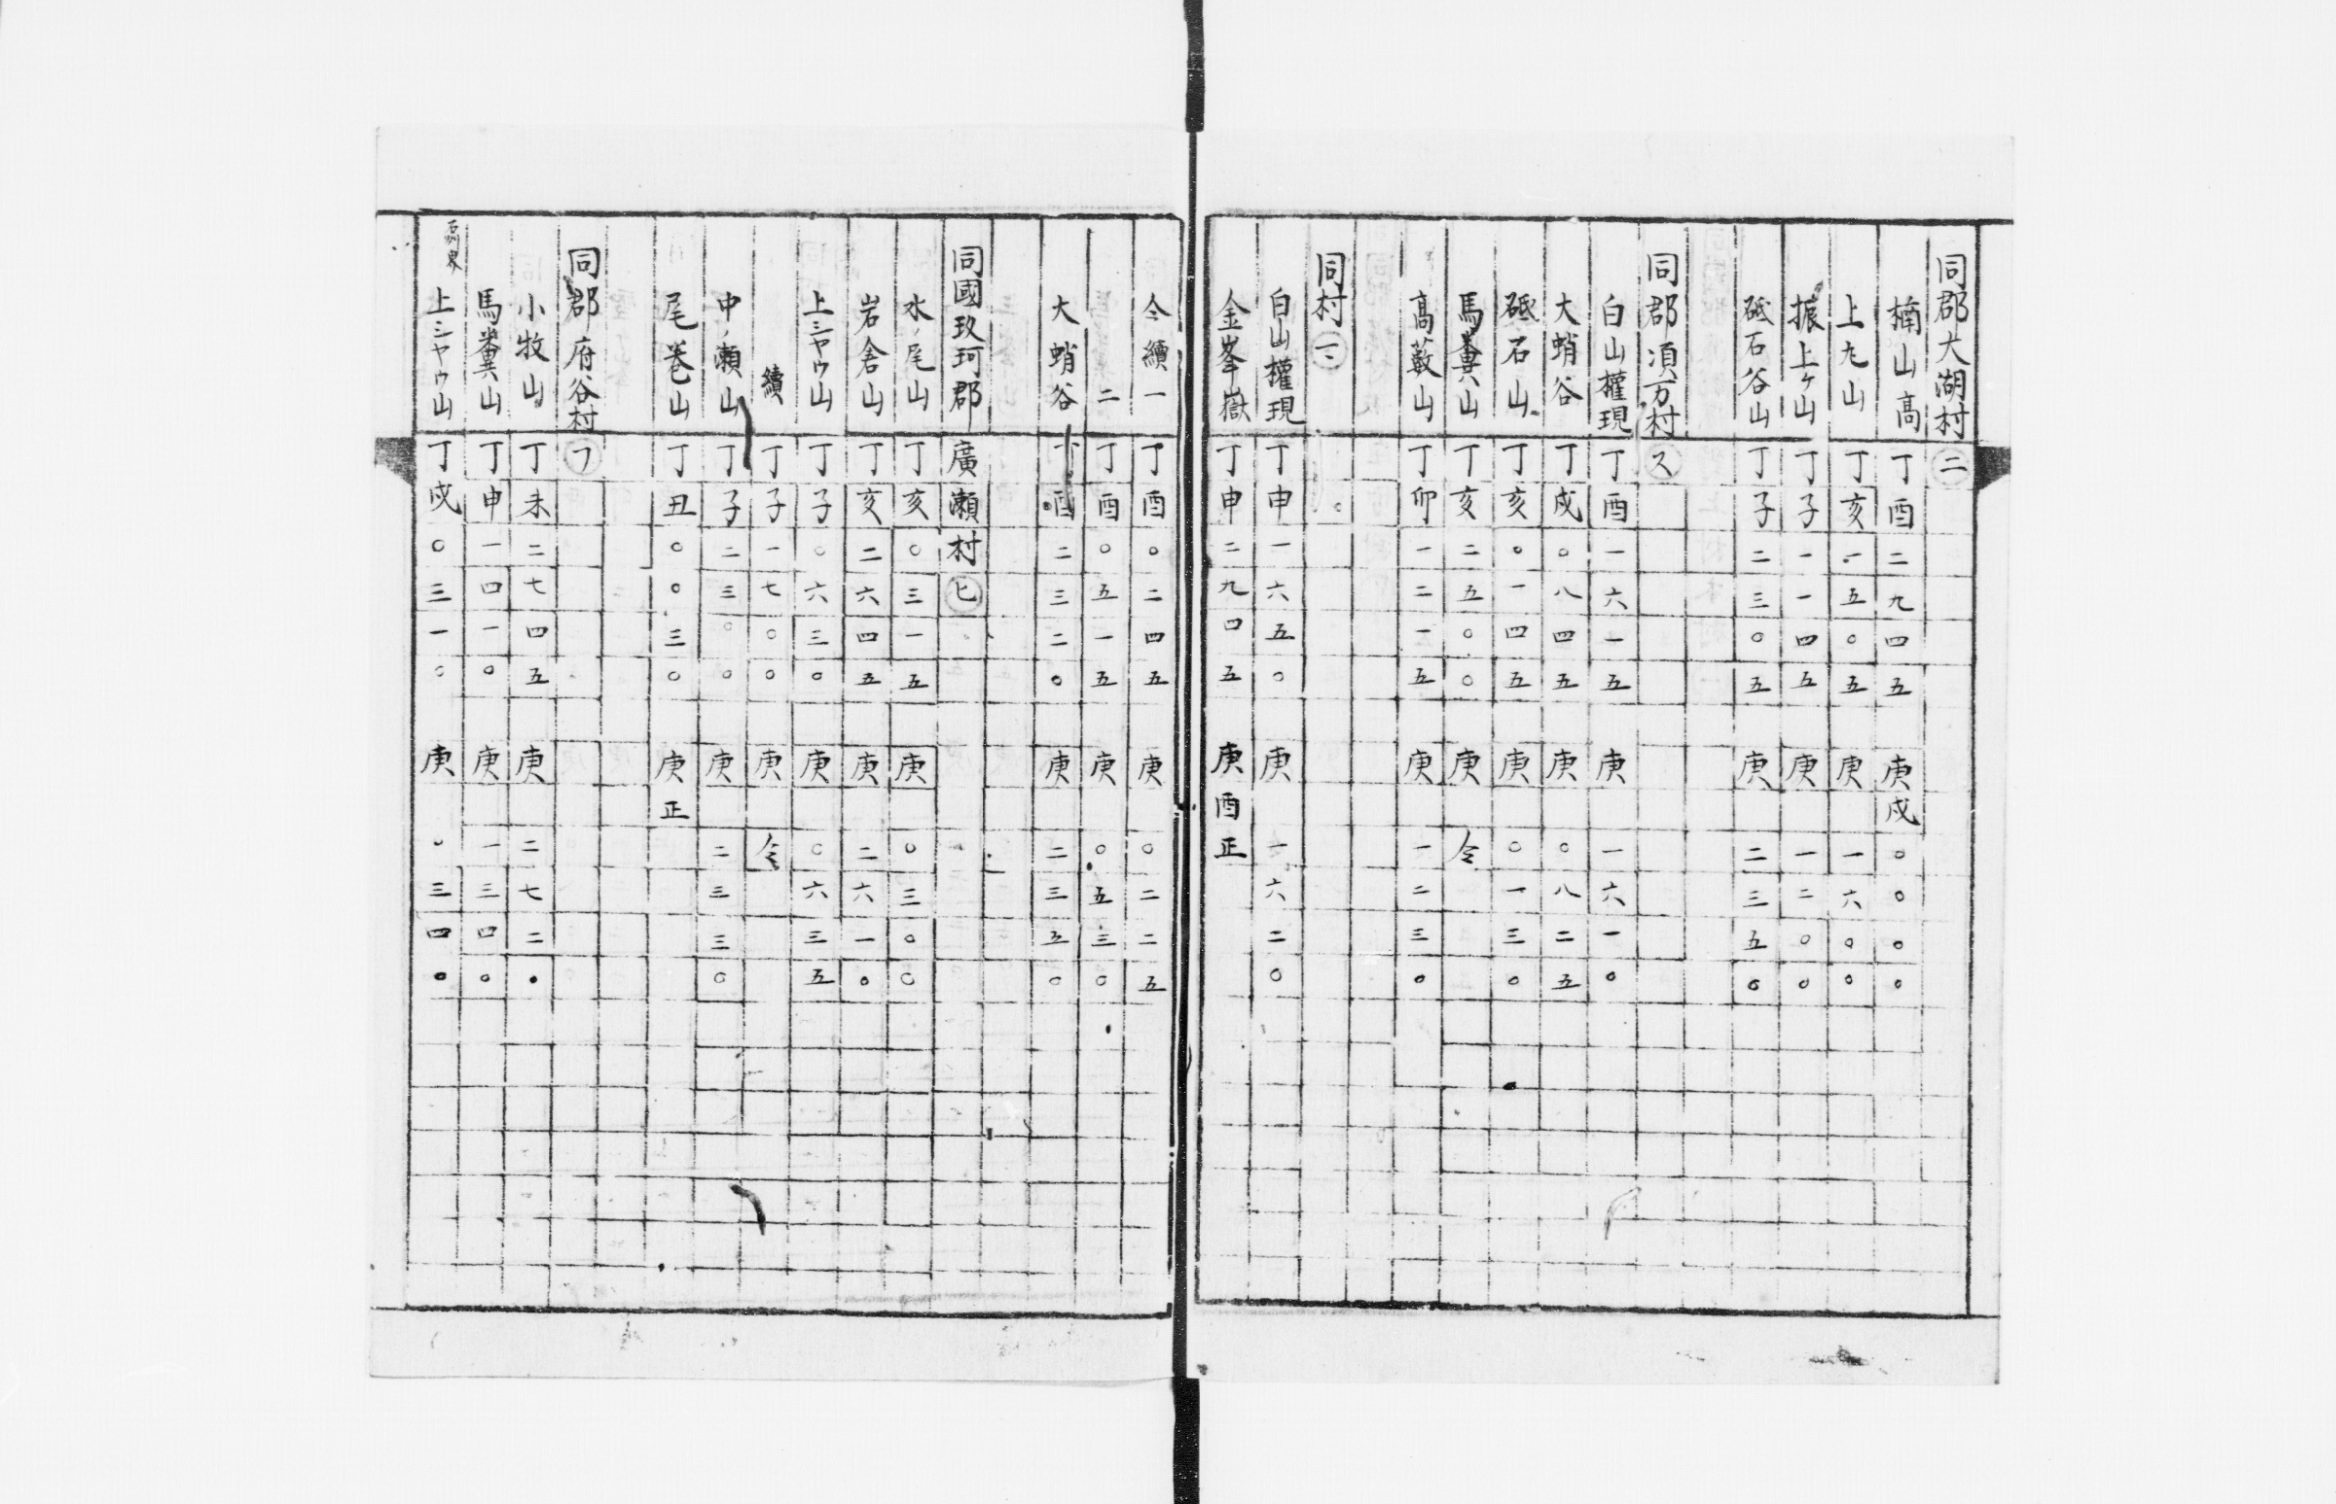 同郡大湖村㊁
楠山高 丁酉二九四五 庚戌〇〇〇〇
上九山 丁亥一五〇五 庚一六〇〇
振上ヶ山 丁子一一四五 庚一二〇〇
砥石谷山 丁子二三〇五 庚二三五〇
同郡須万村 ヌ
白山權現 丁酉一六一五 庚一六一〇
大蛸谷 丁戌〇八四五 庚〇八二五
砥石山 丁亥〇一四五 庚〇一三〇
馬糞山 丁亥二五〇〇 庚仝
高藪山 丁卯一二一五 庚一二三〇
同村
白山權現 丁申一六五〇 庚一六二〇
金峯嶽 丁申二九四五 庚酉正
仝續一 丁酉〇二四五 庚〇二二五
二 丁酉〇五一五 庚〇五三〇
大蛸谷 丁酉二三二〇 庚二三五〇
同國玖珂郡廣瀬村 ヒ
水ノ尾山 丁亥〇三一五 庚〇三〇〇
岩舍山 丁亥二六四五 庚二六一〇
上ジヤウ山 丁子〇六三〇 庚〇六三五
續 丁子一七〇〇 庚仝
中ノ瀬山 丁子二三〇〇 庚二三三〇
尾巻山 丁丑〇〇三〇 庚正
同郡府谷村 フ
小牧山 丁未二七四五 庚二七二〇
馬糞山 丁申一四一〇 庚一三四〇
上ジヤウ山 丁戌〇三一〇 庚〇三四〇